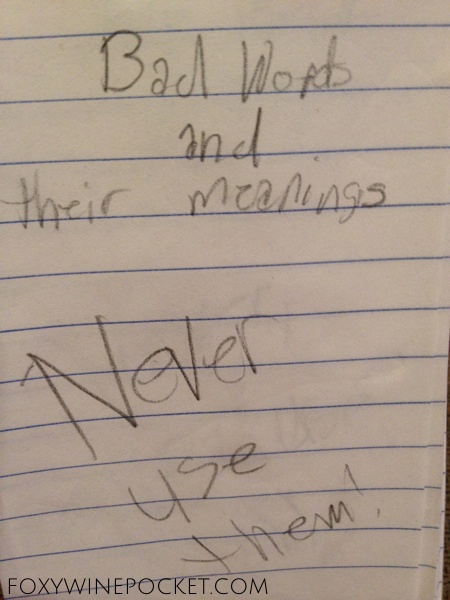 Bad Words
and
their meanings
Never
use
them!
FOXYWINEPOCKET.COM